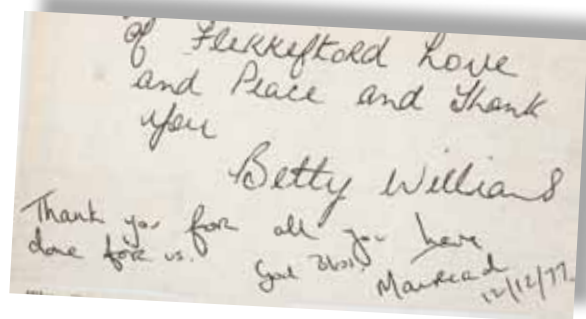 of Flekkefjord Love
and Peace and Thank
you
Betty Williams
Thank you for all you have
done for us.
God Bless
Mairead
12/12/77.